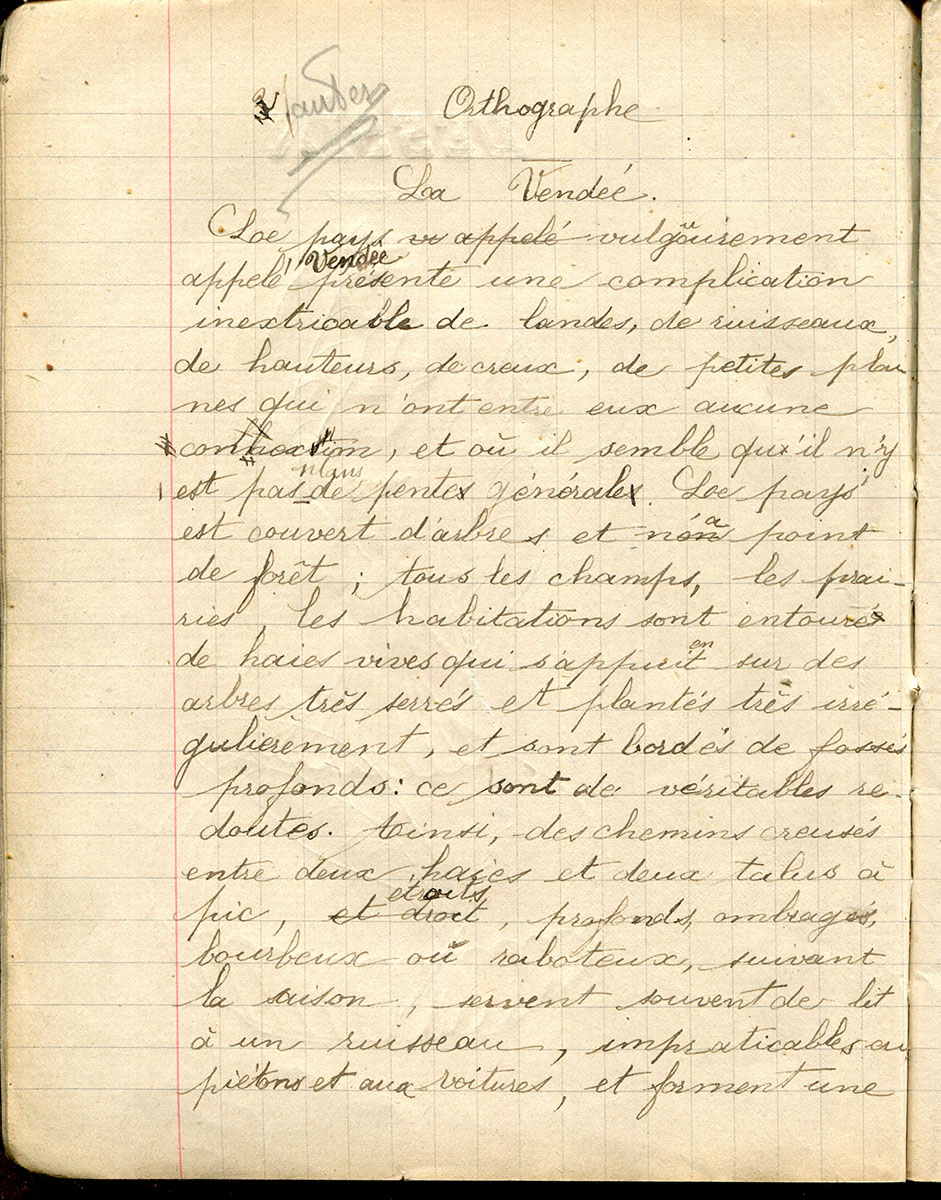 Orthographe
La Vendée.
Le pays appelé vulgairement
Vendée
appelé présente une complication
inextricable de landes, de ruisseaux,
de hauteurs, de creux, de petites plai
nes qui n'ont entre eux aucune
connexion, et où il semble qu'il n'y
est pas de pentes générales. Le pays
est couvert d'arbres et n'a point
de forêt ; tous les champs, les prai-
ries, les habitations sont entourés
de haies vives qui s'appuient sur des
arbres très serrés et plantés très irré-
gulièrement, et sont bordés de fossés
profonds : ce sont de véritables re-
doutes. Ainsi, des chemins creusés
entre deux haies et deux talus à
étroits
pic, et droit, profonds, ombragés,
bourbeux où raboteux, suivant
la saison, servent souvent de lit
à un ruisseau, impraticables au
piétons et aux voitures, et forment une